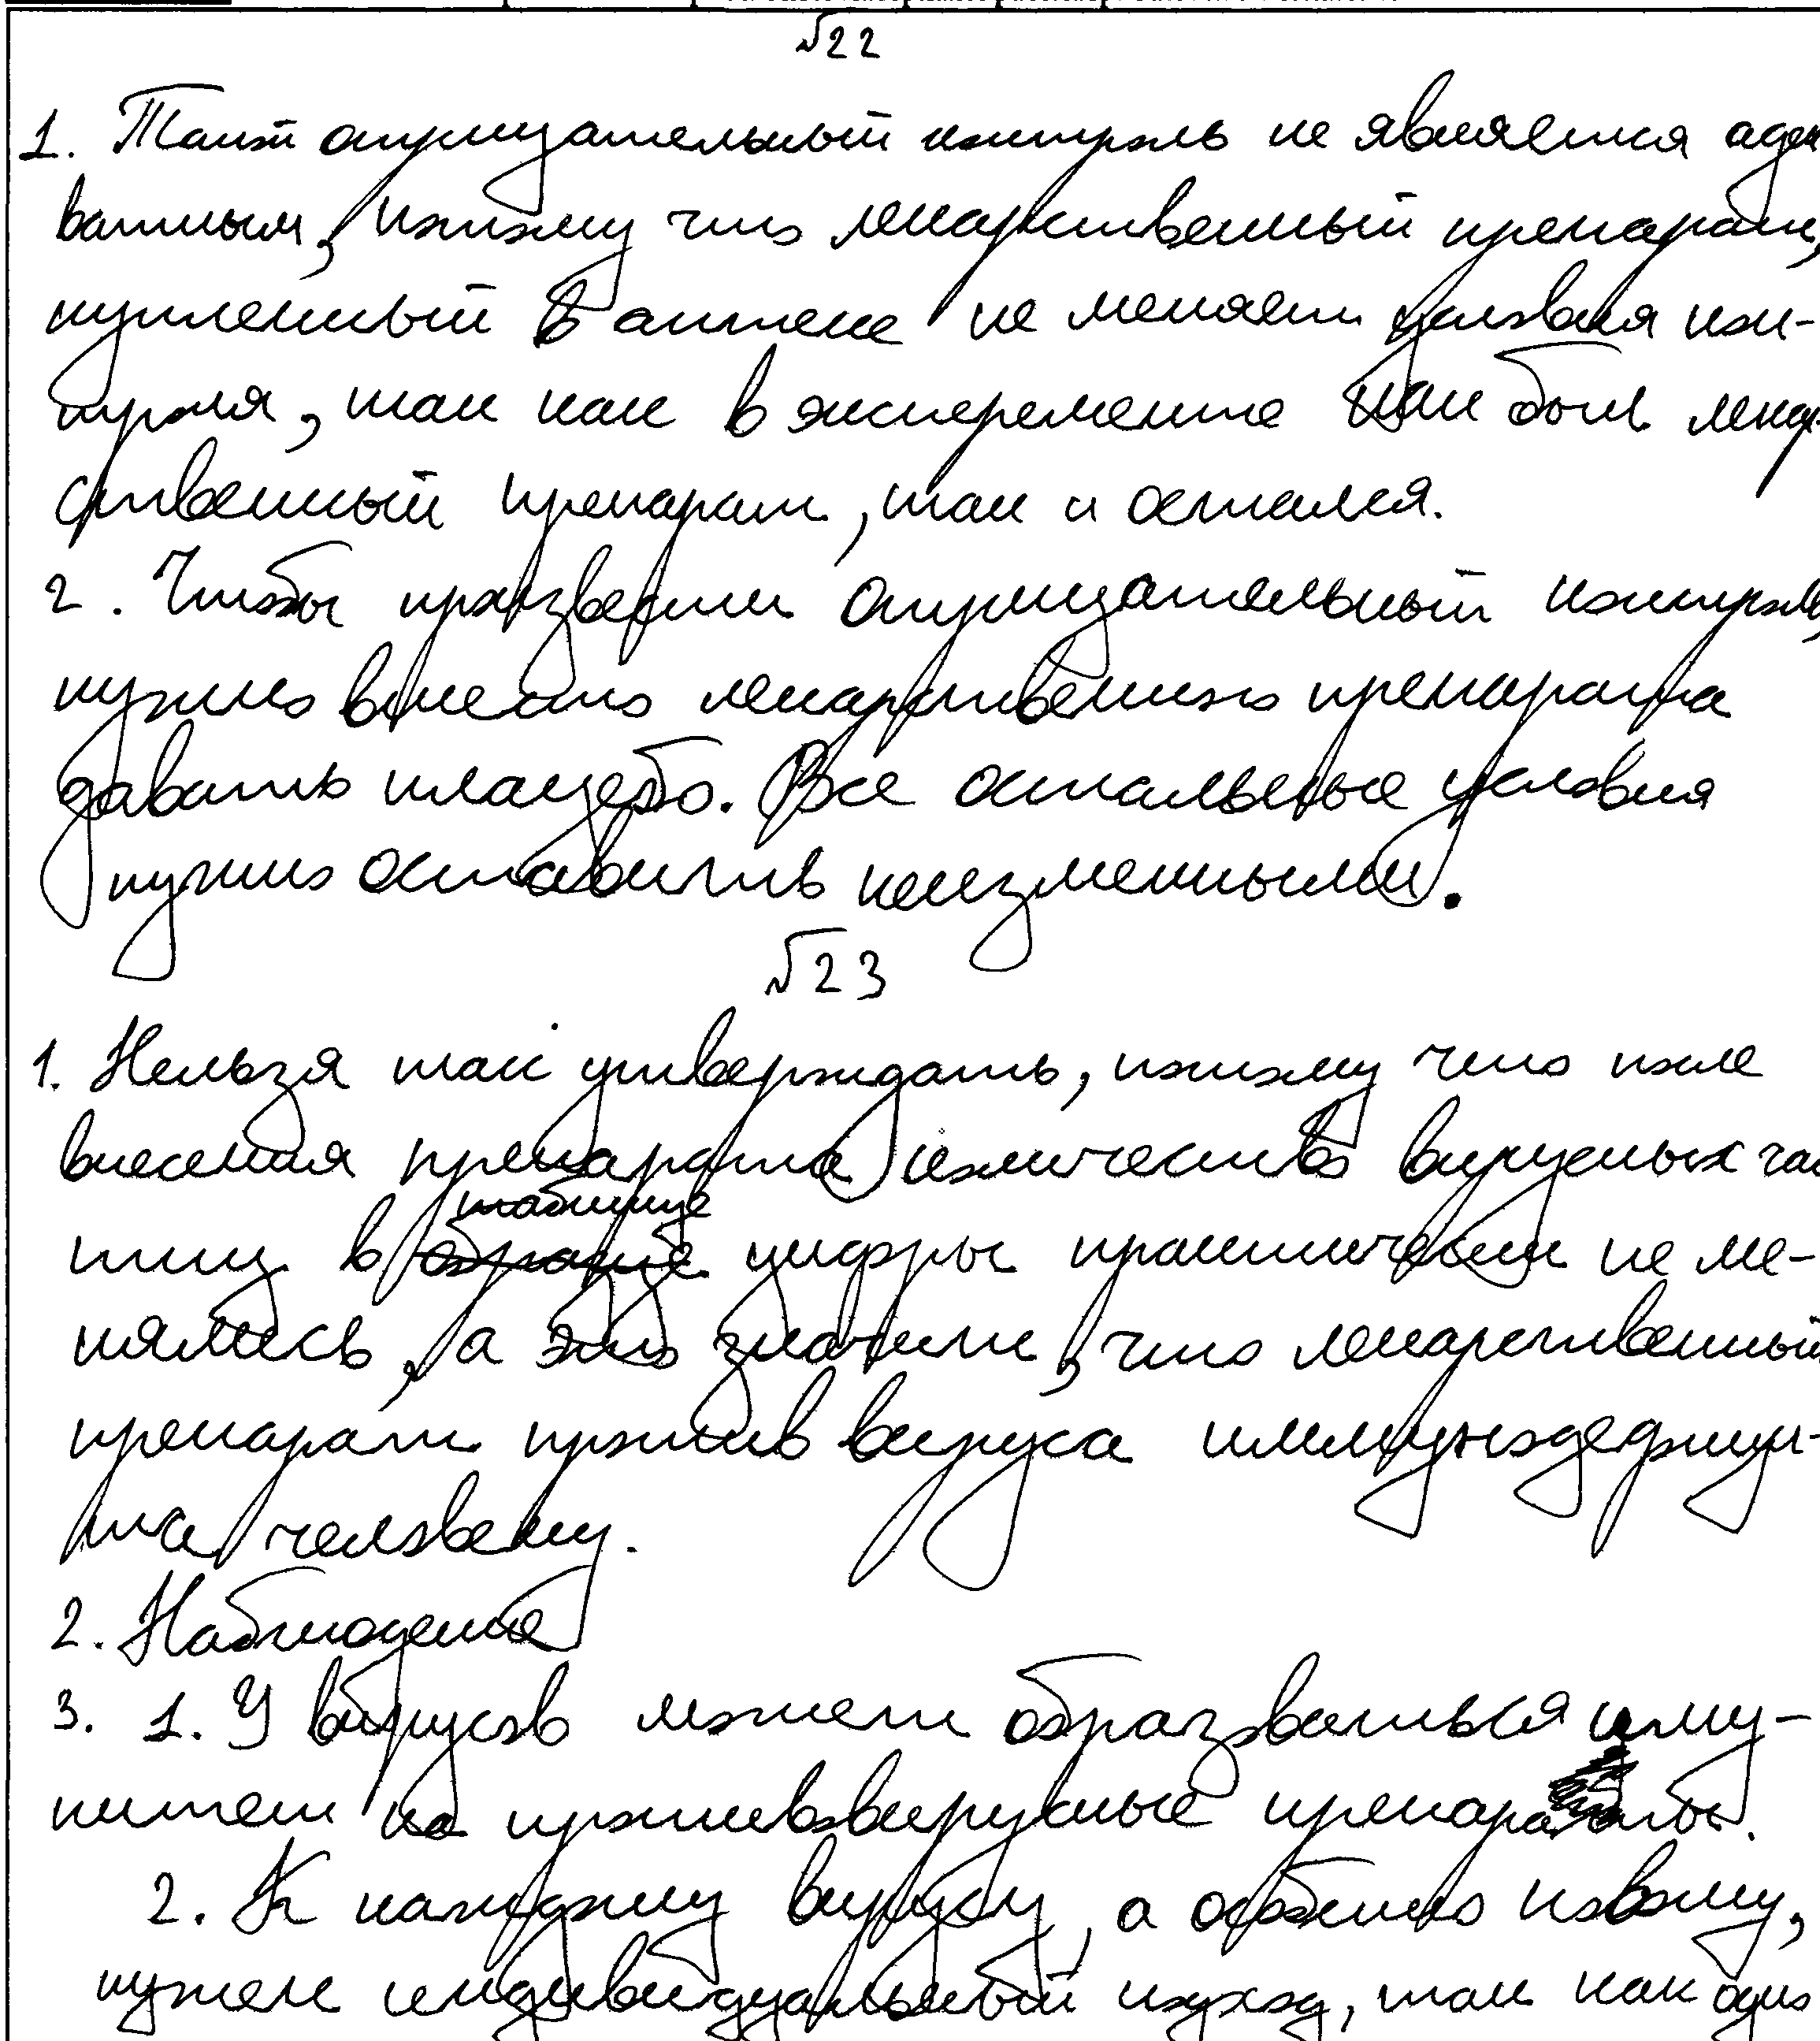 №22
1. Такой отрицательный контроль не является адек
ватным, потому что лекарственный препарат,
купленный в аптеке не меняет условия кон-
троля, так как в эксперементе как был лекар
ственный препарат, так и остался.
2. Чтобы произвести отрицательный контроль,
нужно вместо лекарственного препарата
давать плацебо. Все остальные условия
нужно оставить неизменными.
№23
1. Нельзя так утверждать, потому что после
внесения препарата количество вирусных час
таблице
тиц в цифры практически не ме-
нялись, а это значит, что лекарственный
препарат против вируса иммунодефици-
та человеку.
2. Наблюдение
3. 1. У вирусов может образоваться иму-
нитет на противовирусные препараты.
2. К каждому вирусу, а особенно новому,
нужен индивидуальный подход, так как одно